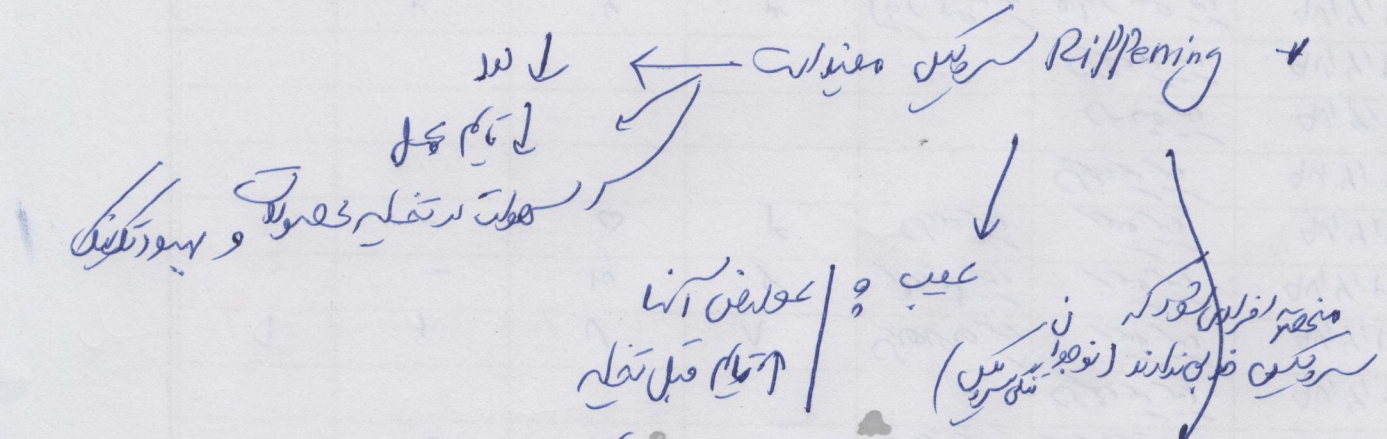 * Riffening سرویکس مفیداست ← ↓ درد
↓ تایم عمل
سهولت در تخلیه محصولات و بهبود تکنیک
عیب :
عوارض آنها
↑ تایم قبل تخلیه
منحصر به افرادی شود که
سرویکس خوبی ندارند (نوجوان تنگی سرویکس)